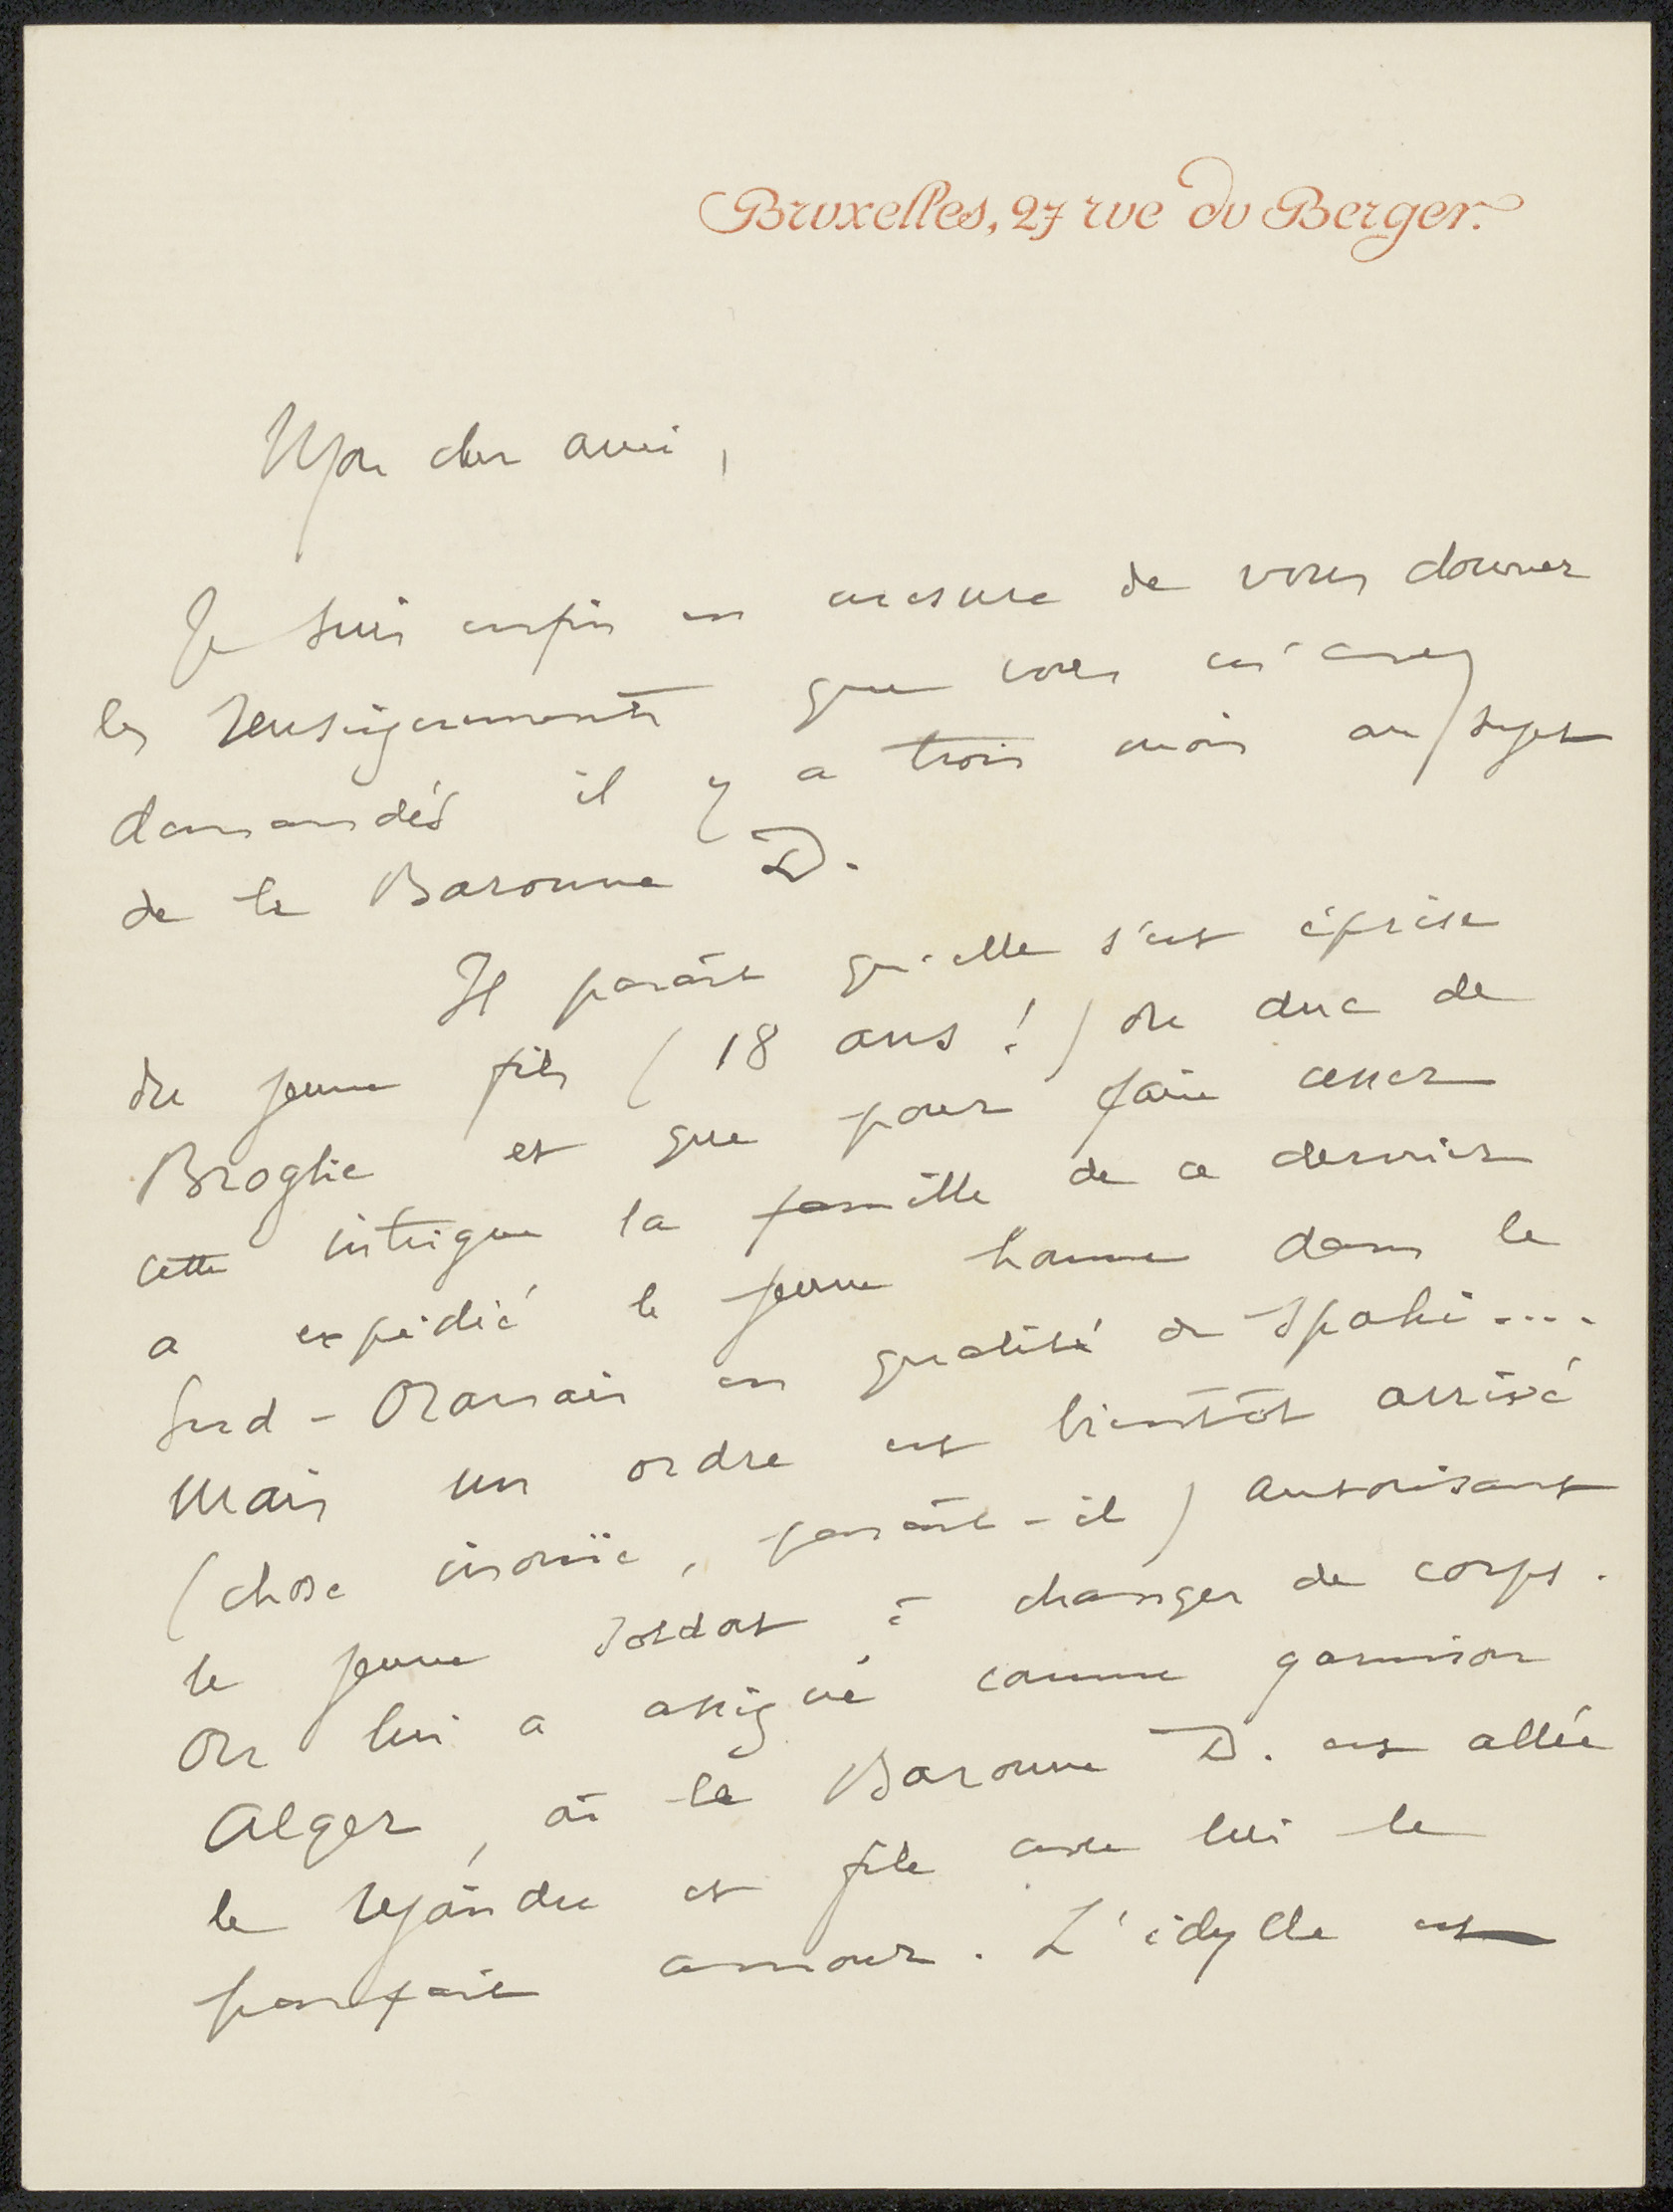 Bruxelles, 27 rue du Berger.
Mon cher ami,
Je suis enfin en mesure de vous donner
les renseignements que vous m'avez
demandés il y a trois mois au sujet
de la Baronne D.
Il paraît qu'elle s'est éprise
du jeune fils (18 ans!) du duc de
Broglie et que pour faire cesser
cette intrigue la famille de ce dernier
a expédié le jeune homme dans le
Sud-Oranais en qualité de Spahi....
Mais un ordre est bientôt arrivé
(chose inouïe, paraît-il) autorisant
le jeune soldat à changer de corps.
On lui a assigné comme garnison
Alger, où la Baronne D. est allée
le rejoindre et file avec lui le
parfait amour. L'idylle est